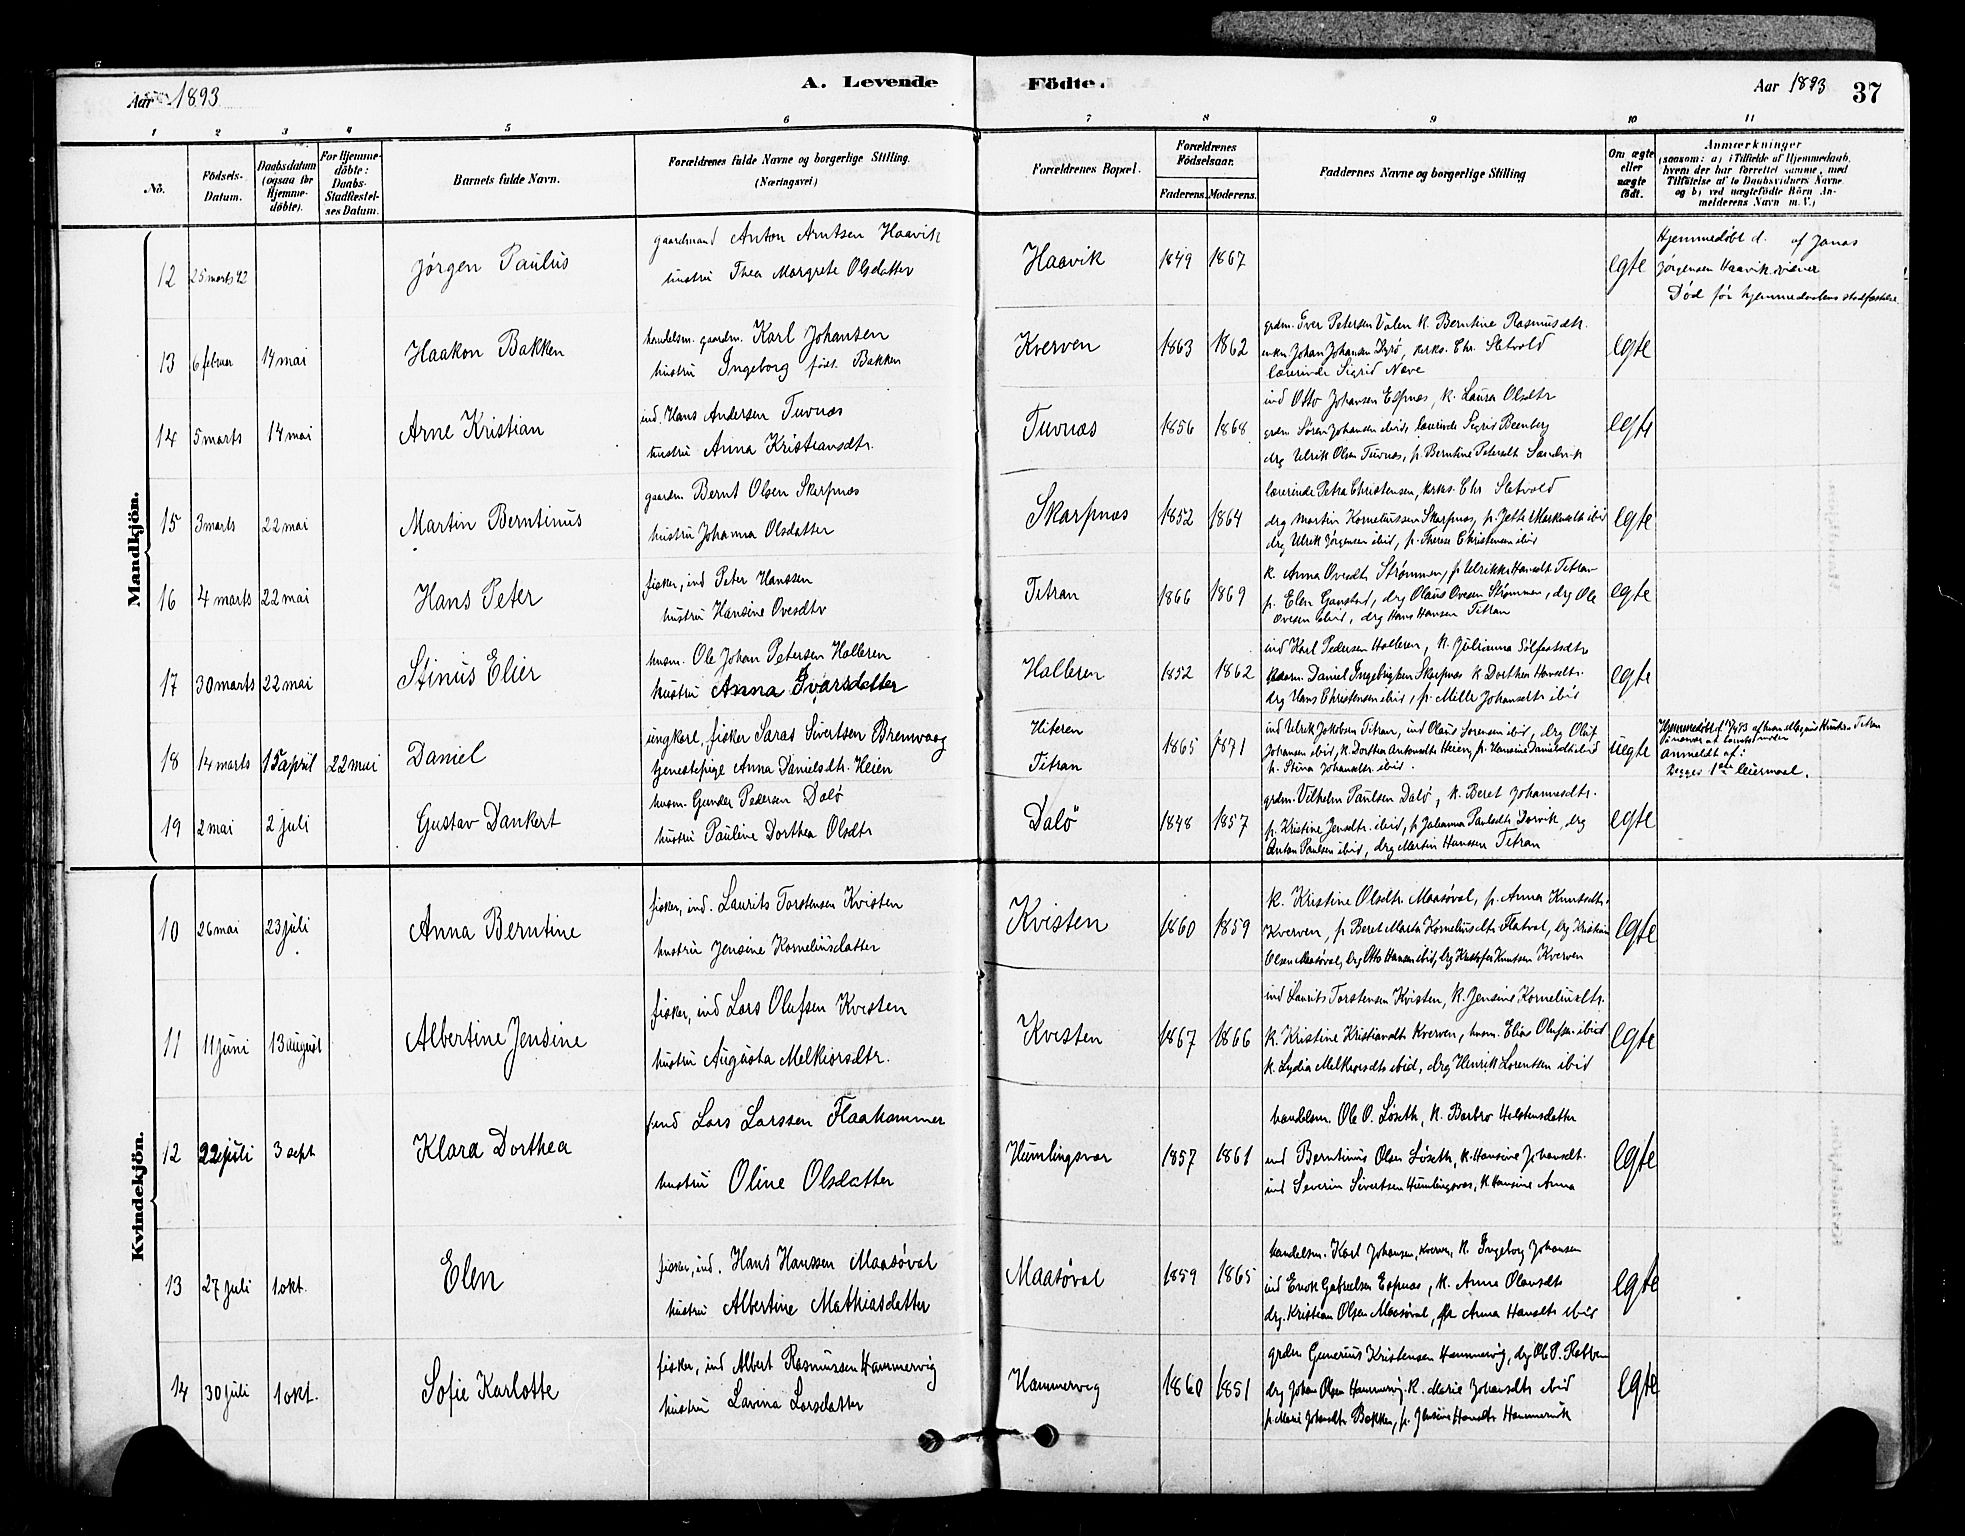 Aar 1893
A. Levende
Födte.
Aar 1893
37
1 2 3 4 5 6 7 8 9 10 11
No.
Födsels-
Datum.
Daabsdatum
(ogsaa for
Hjemme-
döbte).
For Hjemme-
döbte:
Daabs-
Stadfæstel-
ses Datum.
Barnets fulde Navn.
Forældrenes fulde Navne og borgerlige Stilling.
(Næringsvei)
Forældrenes Bopæl.
Forældrenes
Födselsaar.
Faderens. Moderens.
Faddernes Navne og borgerlige Stilling
Om ægte
eller
uægte
født.
Anmærkninger
(saasom: a) i Tilfælde af Hjemmedaab,
hvem der har forrettet samme, med
Tilföielse af to Daabsvidners Navne
og b) ved uægtefödte Börn An-
melderens Navn m. V.)
Mandkjön.
12 25 marts 92
Jørgen Paulus
gaardmand Anton Arntsen Haavik
hustru Thea Margrete Olsdatter
Haavik 1849 1867
egte
Hjemmedøbt d. af Jonas
Jørgensen Haavik
Død før hjemmedaabens stadfæstelse
13 6 februar 14 mai
Haakon Bakken
handelsm. gaardm. Karl Johansen
hustru Ingeborg født Bakken
Kverven 1863 1862
grdm. Iver Petersen Valen k. Berntine Rasmusdtr.
Johan Johansen Dyrø, kirks. Chr. Sletvold
lærerinde Sigrid
egte
14 5 marts 14 mai
Arne Kristian
ind. Hans Andersen Tuvnæs
hustru Anna Kristiansdtr.
Tuvnæs 1856 1868
ind Otto Johansen Espnæs, k. Laura Olsdtr
grdm Søren Johansen ibid, lærerinde Sigrid
drg Ulrik Olsen Tuvnæs, p. Berntine Petersdtr Sandvik
egte
15 3 marts 22 mai
Martin Berntinus
gaardm. Bernt Olsen Skarpnæs
hustru Johanna Olsdatter
Skarpnæs 1852 1864
lærerinde Petra Christensen, kirks. Chr Sletvold
drg Martin Korneliussen Skarpnæs, p. Jette ibid
drg Ulrik Jørgensen ibid, p. Therese Christensen ibid
egte
16 4 marts 22 mai
Hans Peter
fisker, ind Peter Hanssen
hustru Hansine Ovesdtr
Titran 1866 1869
k. Anna Ovesdtr Strømmen, p. Ulrikke Hansdtr Titran
p. Elen Ganstad, drg Olaus Ovesen Strømmen, drg Ole
Ovesen ibid, drg Hans Hansen Titran
egte
17 30 marts 22 mai
Stinus Elier
husm. Ole Johan Petersen Halleren
hustru Anna Ivarsdatter
Halleren 1852 1862
ind Karl Pedersen Halleren, k. Julianna Sölfæstsdtr
Daniel Ingebrigtsen Skarpnæs k Dorthea Hansdtr.
drg Hans Christensen ibid, p. Mille Johansdtr ibid
egte
18 14 marts 15 april 22 mai
Daniel
ungkarl, fisker Saras Sivertsen Bremvaag
tjenestepige Anna Danielsdtr. Heien
Hiteren
Titran
1865 1871
ind Ulrik Jakobsen Titran, ind Olaus Sørensen ibid, drg Oluf
Johansen ibid, k. Dorthea Antonsdtr Heien, p. Hansine Danielsdtr ibid
p. Stina Johansdtr ibid.
uegte
Titran
anmeldt af:
Begges 1ste leiermaal.
19 2 mai 2 juli
Gustav Dankert
husm. Gunder Pedersen Dalø
hustru Pauline Dorthea Olsdtr
Dalø 1848 1857
grdm. Vilhelm Paulsen Dalø, k. Beret Johannesdtr.
p. Kristine Jensdtr. ibid, p Johanna Paulsdtr Dørvik, drg
Anton Paulsen ibid, drg Martin Hanssen Titran
egte
Kvindekjön.
10 26 mai 23 juli
Anna Berntine
fisker, ind. Laurits Torstensen Kvisten
hustru Jensine Korneliusdatter
Kvisten 1860 1859
k. Kristine Olsdtr Maasøval, p. Anna Knutsdtr.
Kverven, p Beret Marta Korneliusdtr Flatval, drg Kristian
Olsen Maasøval, drg Otto Hansen ibid, drg Kristofer Knutsen Kverven
egte
11 11 juni 13 august
Albertine Jensine
fisker, ind Lars Olufsen Kvisten
hustru Augusta Melkiorsdtr.
Kvisten 1867 1866
ind Laurits Torstensen Kvisten, k. Jensine Korneliusdtr.
k. Kristine Kristiansdtr Kverven, husm. Elias Olufsen ibid
k. Lydia Melkiorsdtr ibid, drg Henrik Lorentsen ibid
egte
12 22 juli 3 sept
Klara Dorthea
ind Lars Larssen Flaahammer
hustru Oline Olsdatter
Humlingsvær 1857 1861
handelsm. Ole O. Løseth, k. Barbro Helstensdatter
ind Berntinus Olsen Løseth, k. Hansine Johansdtr.
ind Severin Sivertsen Humlingsvær, k Hansine Anna
egte
13 27 juli 1 okt.
Elen
fisker, ind. Hans Hanssen Maasøval
hustru Albertine Mathiasdatter
Maasøval 1859 1865
handelsm. Karl Johansen, Kverven, k. Ingeborg Johansen
ind Erik Gabrielsen Espnæs, k. Anna Olausdtr
drg. Kristian Olsen Maasøval, p. Anna Hansdtr ibid
egte
14 30 juli 1 okt.
Sofie Karlotte
fisker, ind Albert Rasmussen Hammervig
hustru Lavina Larsdatter
Hammervig 1860 1851
grdm Gunerius Kristensen Hammervig, drg Ole P.
drg Johan Olsen Hammervig, k. Marie Johansdtr ibid
p. Marie Johansdtr Bakken, p. Jensine Hansdtr Hammervik
egte